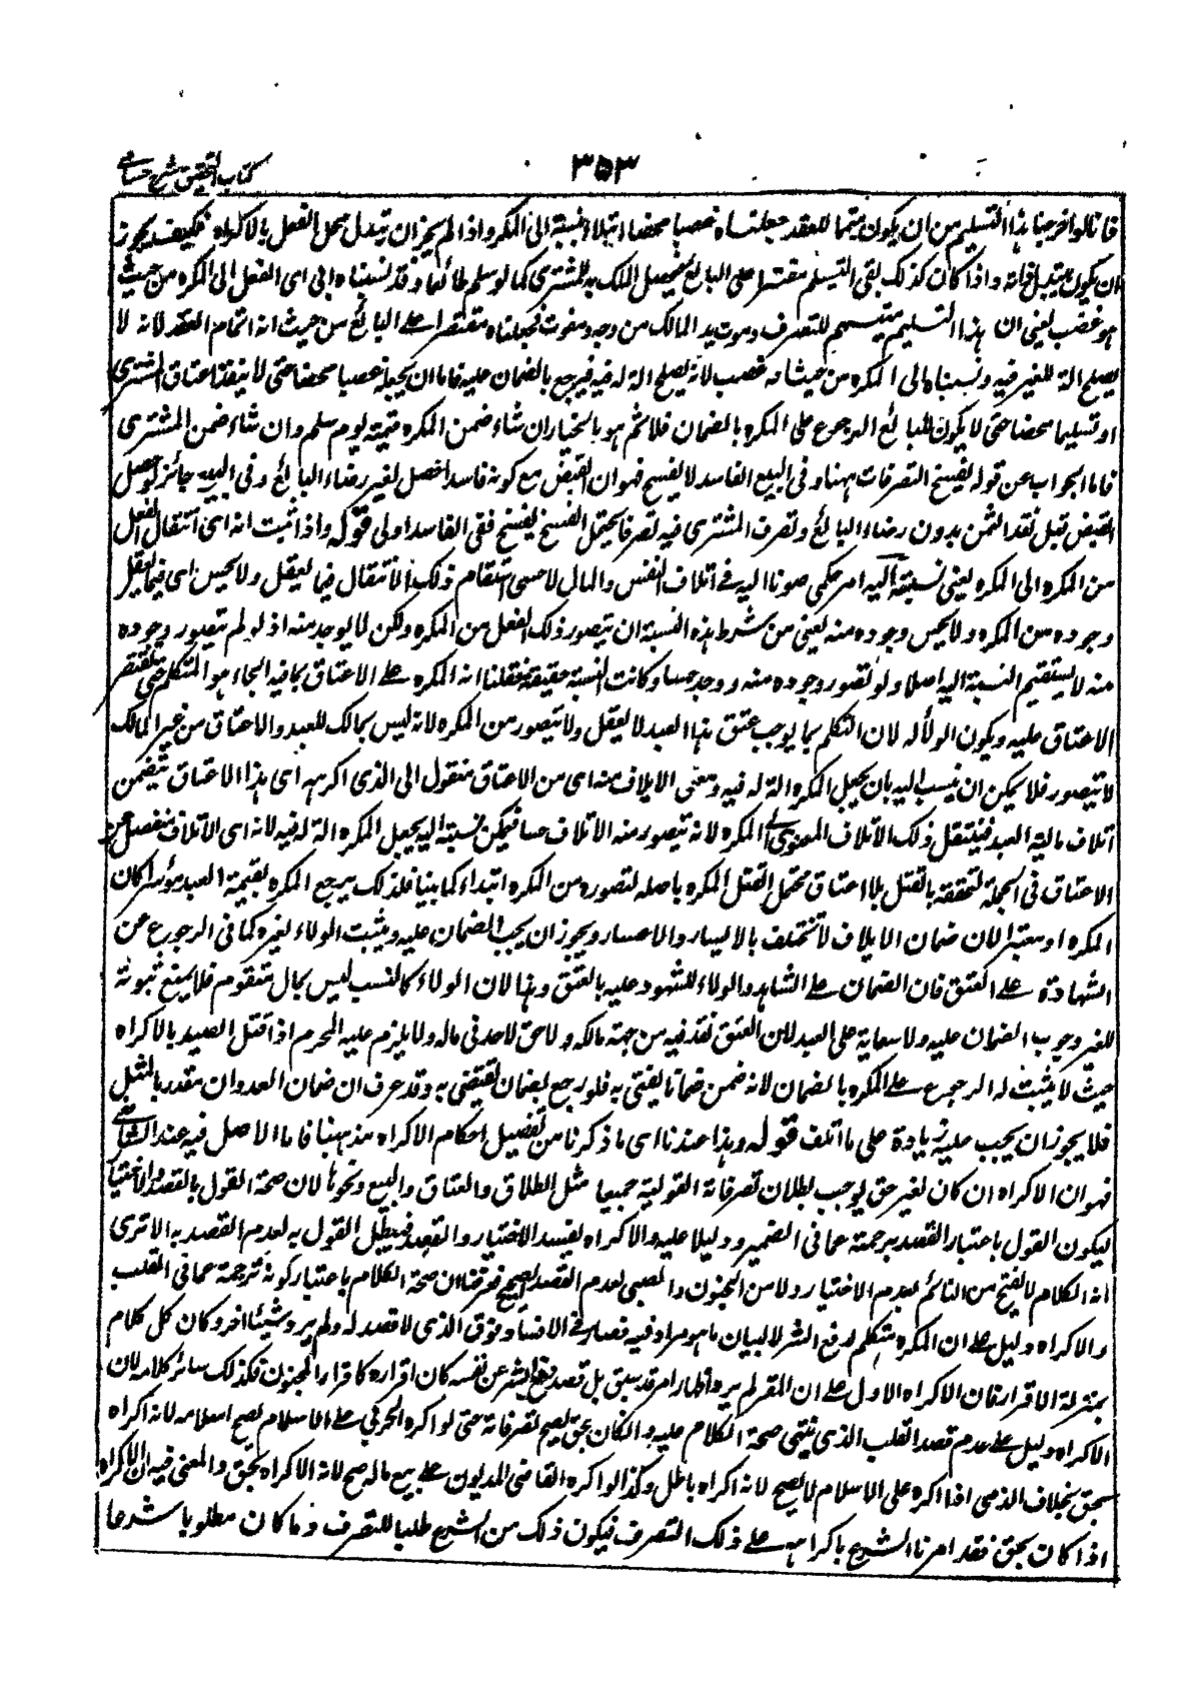 كتاب التحقيق شرح حسامی
۳۵۳
فانا لو اخرجنا هذا التسليم من ان يكون متمما للعقد جعلناه غصبا محضا ابتداء بنسبة الى المكره واذا لم يجز ان تبدل محل الفعل بالاكراه فكيف يجوز
ان يكون بتبدل ذاته واذا كان كذلك بقى التسليم مقتصرا على البائع فيحصل الملك به للمشترى كما لو سلم طائعا وقد نسبناه الى اى الفعل الى المكره من حيث
هو غصب يعنى ان هذا التسليم متمم للتصرف ومفوت يد المالك من وجه ومفوت فجعلناه مقتصرا على البائع من حيث انه اتمام العقد لانه لا
يصلح الة للغير فيه ونسبناه الى المكره من حيث انه غصب لانه يصلح الة له فيه فيرجع بالضمان عليه فاما ان يجعله غصبا محضا حتى لا ينفذ اعتاق المشترى
او تسليما محضا حتى لا يكون للبائع الرجوع على المكره بالضمان فلا ثم هو بالخيار ان شاء ضمن المكره قيمته يوم سلم وان شاء ضمن المشترى
فاما الجواب عن قوله يفسخ التصرفات ههنا وفى البيع الفاسد لا يفسخ فهو ان القبض مع كونه فاسدا حصل لغير رضاء البائع وفى البيع جائز لو حصل
القبض قبل نقد الثمن بدون رضاء البائع وتصرف المشترى فيه تصرفا يحتمل الفسخ يفسخ ففى الفاسد اولى قوله واذا ثبت انه اى انتقال الفعل
من المكره الى المكره يعنى نسبته اليه امر حكمى صرنا اليه فى اتلاف النفس والمال لا حسى استقام ذلك الانتقال فيما يعقل ولا يحس اى فيما يعقل
وجوده من المكره ولا يحس وجوده منه يعنى من شرط هذه النسبة ان يتصور ذلك الفعل من المكره ولكن لا يوجد منه اذ لو لم يتصور وجوده
منه لا يستقيم النسبة اليه اصلا ولو تصور وجوده منه ووجد حسا وكانت النسبة حقيقة فقلنا انه المكره على الاعتاق بما فيه الجاء هو المتكلم حتى يقتصر
الاعتاق عليه ويكون الولاء له لان التكلم بما يوجب عتق هذا العبد لا يعقل ولا يتصور من المكره لانه ليس بمالك للعبد والاعتاق من غير المالك
لا يتصور فلا يمكن ان ينسب اليه بان يجعل المكره الة له فيه ومعنى الاتلاف منه اى من الاعتاق منقول الى الذى اكرهه اى هذا الاعتاق يتضمن
اتلاف مالية العبد فينتقل ذلك الاتلاف المعنوى الى المكره لانه يتصور منه الاتلاف حسا فيمكن نسبته اليه بجعل المكره الة له فيه لانه اى الاتلاف منفصل عن
الاعتاق فى الجملة لتحققه بالقتل بلا اعتاق محتمل للنقل المكره باصله لتصوره من المكره ابتداء كما بينا فلذلك يرجع المكره بقيمة العبد موسرا كان
المكره او معسرا لان ضمان الاتلاف لا تختلف بالايسار والاعسار ويجوز ان يجب الضمان عليه ويثبت الولاء لغيره كما فى الرجوع عن
الشهادة على العتق فان الضمان على الشاهد والولاء للمشهود عليه بالعتق وهذا لان الولاء كالنسب ليس بمال متقوم فلا يمنع ثبوته
للغير وجوب الضمان عليه ولا سعاية على العبد لان العتق نفذ فيه من جهة مالكه ولا حق لاحد فى ماله ولا يلزم عليه المحرم اذا قتل الصيد بالاكراه
حيث لا يثبت له الرجوع على المكره بالضمان لانه ضمن ضمانا يفتى به فلو رجع لضمان يقتضى به وقد عرف ان ضمان العدوان مقدر بالمثل
فلا يجوز ان يجب عليه زيادة على ما اتلف قوله وهذا عندنا اى ما ذكرنا من تفصيل احكام الاكراه مذهبنا فاما الاصل فيه عند الشافعى
فهو ان الاكراه ان كان لغير حق يوجب بطلان تصرفاته القولية جميعا مثل الطلاق والعتاق والبيع ونحوها لان صحة القول بالقصد والاختيار
ليكون القول باعتبار القصد ترجمة عما فى الضمير ودليلا عليه والاكراه يفسد الاختيار والقصد فيبطل القول به لعدم القصد به الا ترى
انه الكلام لا يصح من النائم لعدم الاختيار ولا من المجنون والصبى لعدم القصد الصحيح فعرفنا ان صحة الكلام باعتبار كونه ترجمة عما فى القلب
والاكراه دليل على ان المكره متكلم لدفع الشر لا لبيان ما هو مراده فيه فصار فى الافساد فوق الذى لا قصد له ولم يرد شيئا اخر وكان كل كلام
بمنزلة الاقرار فان الاكراه الاول على ان المقر لم يرد اظهار امر قد سبق بل قصد دفع الشر عن نفسه كان اقراره كاقرار المجنون فكذلك سائر كلامه لان
الاكراه دليل على عدم قصد القلب الذى ينتفى صحة الكلام عليه وان كان بحق يصح تصرفاته حتى لو اكره الحربى على الاسلام يصح اسلامه لانه اكراه
بحق بخلاف الذمى اذا اكره على الاسلام لا يصح لانه اكراه باطل وكذا لو اكره القاضى المديون على بيع ماله صح لانه الاكراه بحق والمعنى فيه ان الاكراه
اذا كان بحق فقد امرنا الشرع باكراهه على ذلك التصرف فيكون ذلك من الشرع طلبا للتصرف وما كان مطلوبا شرعا